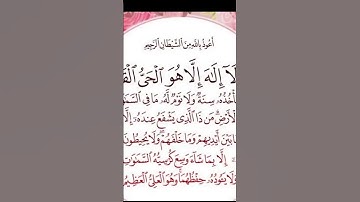 أَعُوذُ بِاللَّهِ مِنَ ٱلشَّيْطَانِ ٱلرَّجِيمِ
لَا إِلَٰهَ إِلَّا هُوَ ٱلْحَىُّ ٱلْقَ
أْخُذُهُۥ سِنَةٌ وَلَا نَوْمٌ لَّهُۥ مَا فِى ٱلسَّمَٰو
لْأَرْضِ مَن ذَا ٱلَّذِى يَشْفَعُ عِندَهُۥٓ إِلَّا
ا بَيْنَ أَيْدِيهِمْ وَمَا خَلْفَهُمْ وَلَا يُحِيطُونَ
إِلَّا بِمَا شَآءَ وَسِعَ كُرْسِيُّهُ ٱلسَّمَٰوَٰتِ
وَلَا يَـُٔودُهُۥ حِفْظُهُمَا وَهُوَ ٱلْعَلِىُّ ٱلْعَظِيمُ